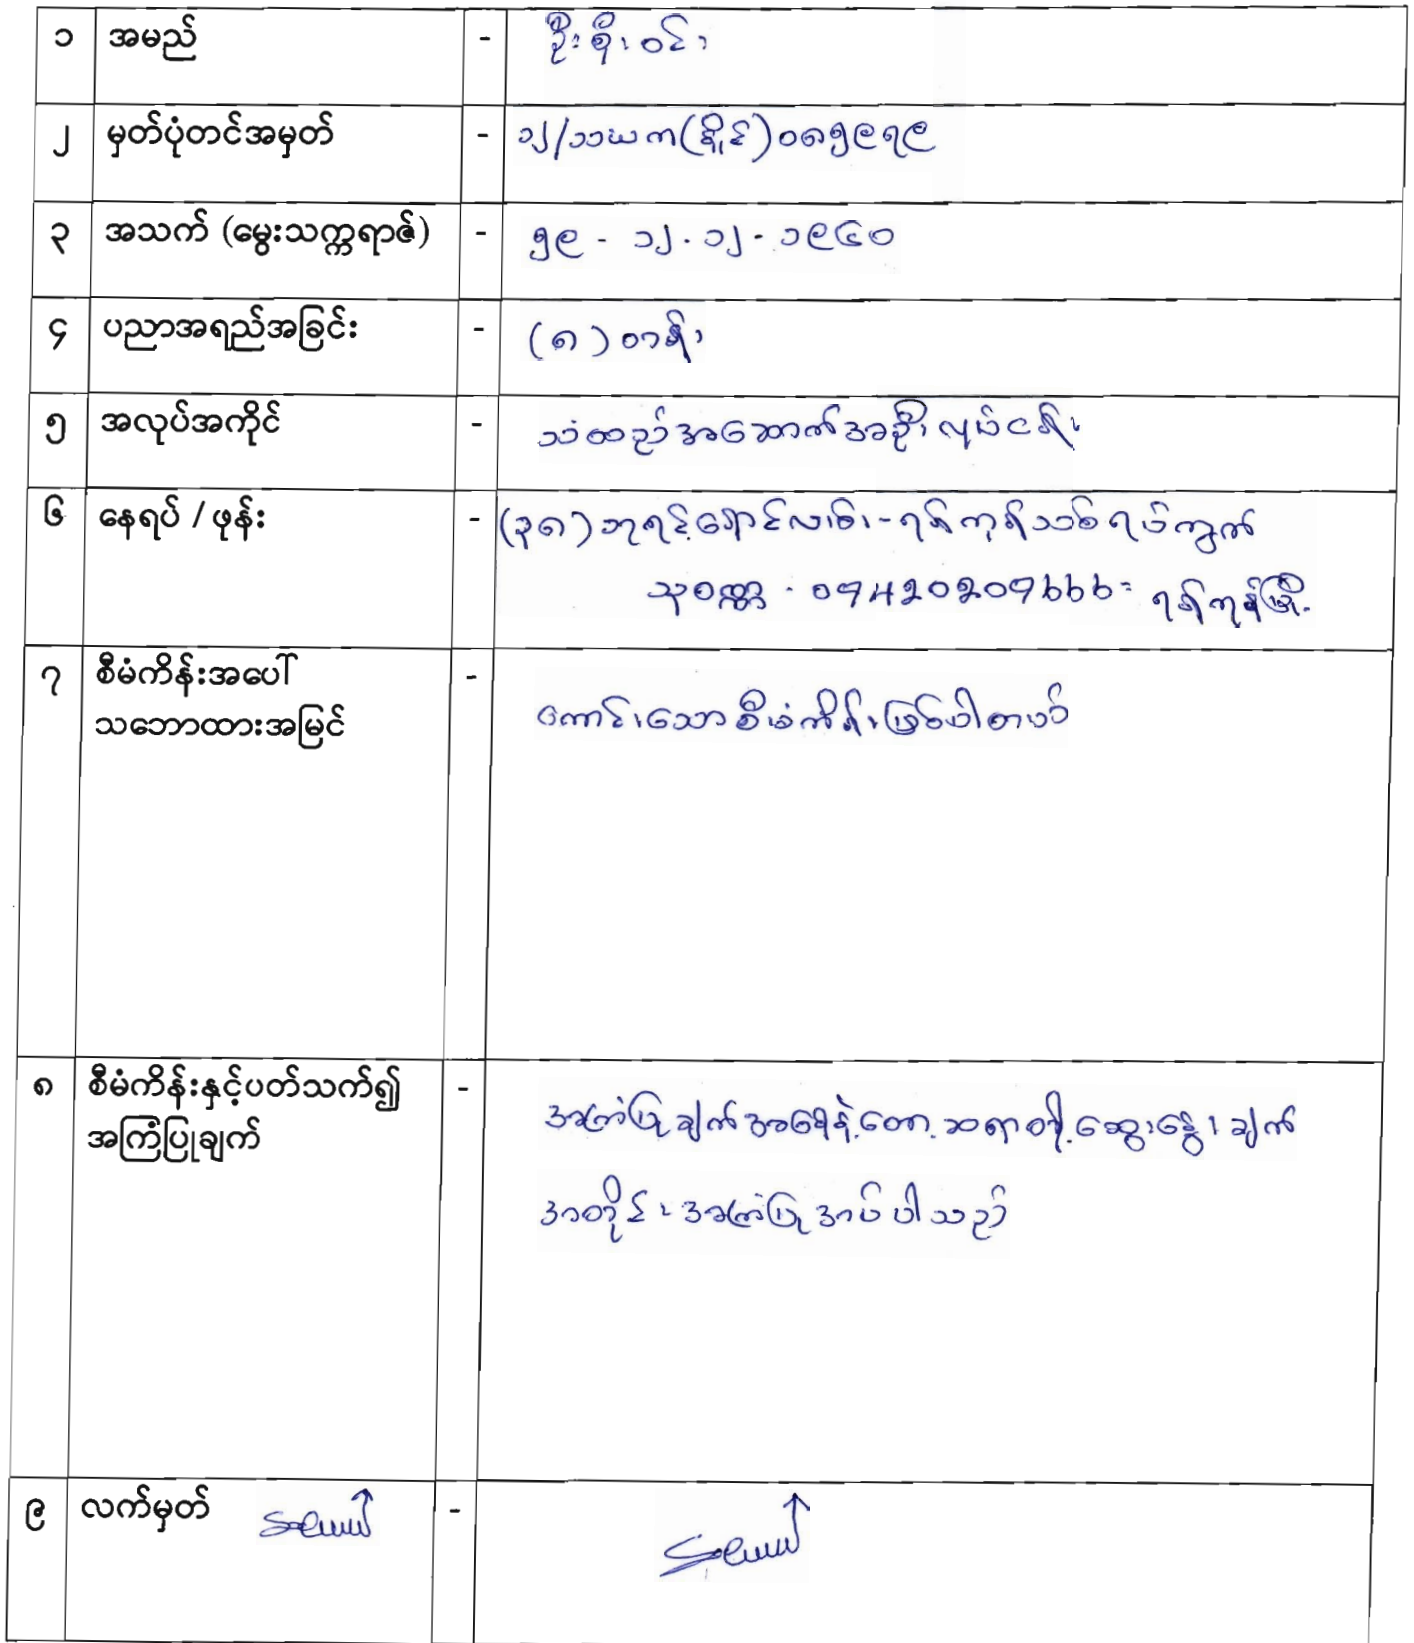 ၁ အမည် - ဦးစိုးဝင်း
၂ မှတ်ပုံတင်အမှတ် - ၁၂/ဿဃက(နိုင်)၀၈၅၉၇၉
၃ အသက် (မွေးသက္ကရာဇ်) - ၅၉ - ၁၂.၁၂.၁၉၆၀
၄ ပညာအရည်အခြင်း - (၈) တန်း
၅ အလုပ်အကိုင် - သံထည်အဆောက်အဦးလုပ်ငန်း
၆ နေရပ် / ဖုန်း - (၃၈) ဘုရင့်နောင်လမ်း - ရန်ကုန်သစ်ရပ်ကွက်
သုဝဏ္ဏ - 09420209666 = ရန်ကုန်မြို့.
၇ စီမံကိန်းအပေါ် -
သဘောထားအမြင် ကောင်းသောစီမံကိန်းဖြစ်ပါတယ်
၈ စီမံကိန်းနှင့်ပတ်သက်၍ - အကြံပြုချက်အနေနဲ့တော့ ဆရာတို့ဆွေးနွေးချက်
အကြံပြုချက်
အတိုင်းအကြံပြုအပ်ပါသည်
၉ လက်မှတ် -